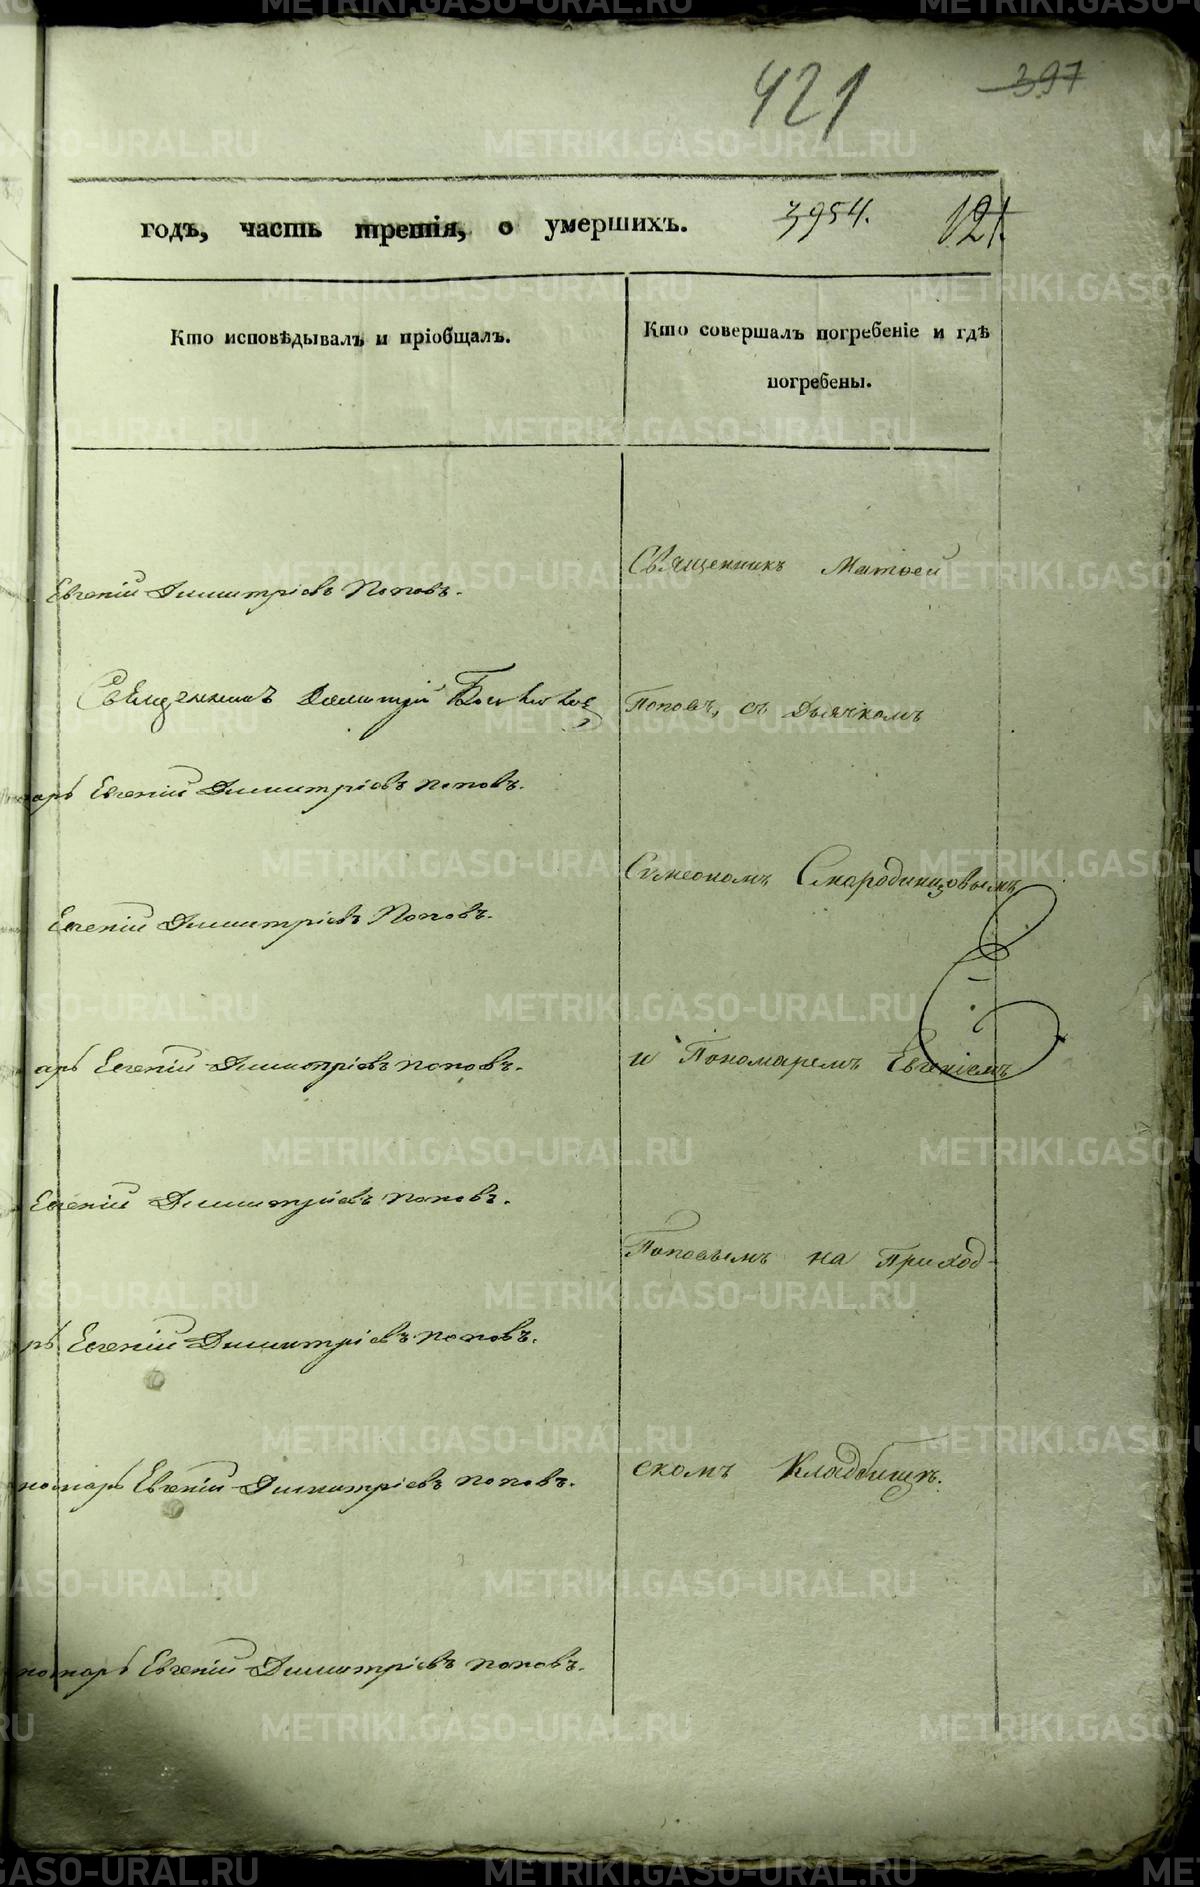 421 397
годъ, часть третія, о умершихъ. 3954. 121.
Кто исповѣдывалъ и пріобщалъ.
Кто совершалъ погребеніе и гдѣ
погребены.
Евгеній Димитріевъ Поповъ.
Священникъ Димитрій
арь Евгеній Димитріевъ Поповъ.
Евгеній Димитріевъ Поповъ.
арь Евгеній Димитріевъ Поповъ.
Евгеній Димитріевъ Поповъ.
рь Евгеній Димитріевъ Поповъ.
номарь Евгеній Димитріевъ Поповъ.
номарь Евгеній Димитріевъ Поповъ.
Священникъ Матѳей
Поповъ, съ Дьячкомъ
Сѵмеономъ Смородинцовымъ
и Пономаремъ Евгеніемъ
Поповымъ на Приход-
скомъ Кладбищѣ.
METRIKI.GASO-URAL.RU